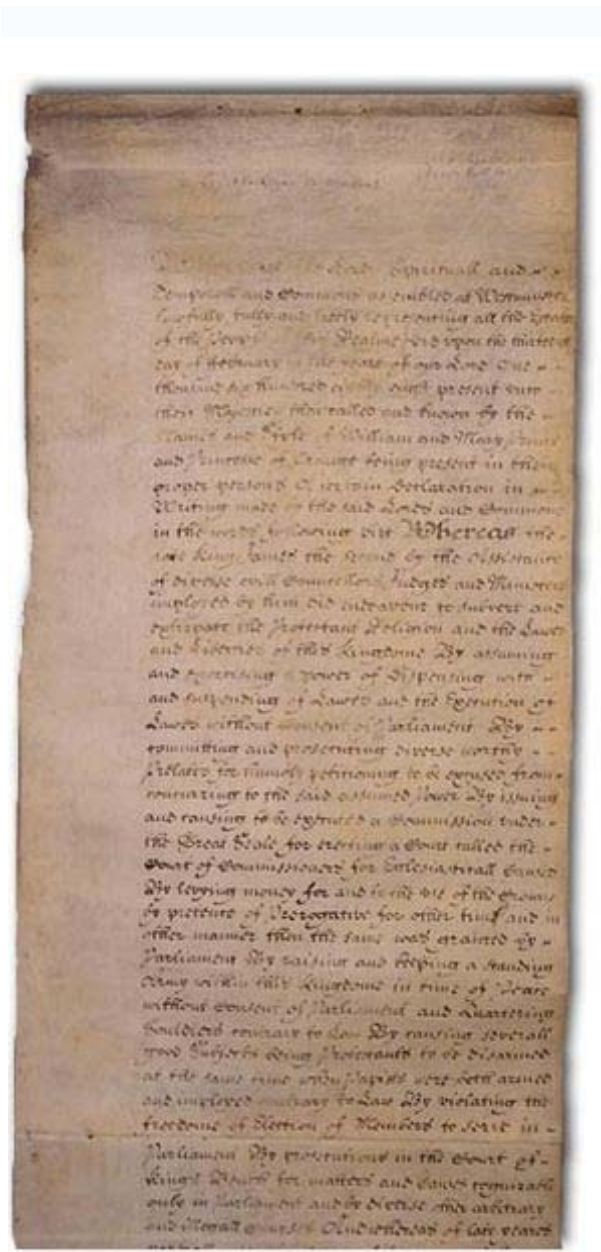 Lords Spirituall and
Temporall and Commons assembled at Westminster
lawfully fully and freely representing all the Estates
of the People of this Realme did upon the thirteenth
day of February in the yeare of our Lord One
thousand six hundred eighty eight present unto
their Majesties then called and known by the
Names and Stile of William and Mary Prince
and Princesse of Orange being present in their
proper persons A certain Declaration in
Writing made by the said Lords and Commons
in the words following vizt Whereas the
late King James the Second by the Assistance
of diverse evill Councellors Judges and Ministers
imployed by him did endeavour to subvert and
extirpate the Protestant Religion and the Lawes
and Liberties of this Kingdome By assuming
and exercising a power of Dispensing with
and suspending of Lawes and the Execution of
Lawes without Consent of Parliament By
committing and prosecuting diverse worthy
Prelates for humbly petitioning to be excused from
concurring to the said assumed Power By issuing
and causing to be executed a Commission under
the Great Seale for erecting a Court called the
Court of Commissioners for Ecclesiasticall Causes
By levying money for and to the use of the Crowne
by pretence of Prerogative for other time and in
other manner then the same was granted by
Parliament By raising and keeping a standing
Army within this Kingdome in time of Peace
without Consent of Parliament and Quartering
Souldiers contrary to Law By causing severall
good Subjects being Protestants to be disarmed
at the same time when Papists were both armed
and imployed contrary to Law By violating the
freedome of Election of Members to serve in
Parliament By prosecutions in the Court of
Kings Bench for matters and causes cognizable
only in Parliament and by diverse other arbitrary
and illegall courses And whereas of late yeares